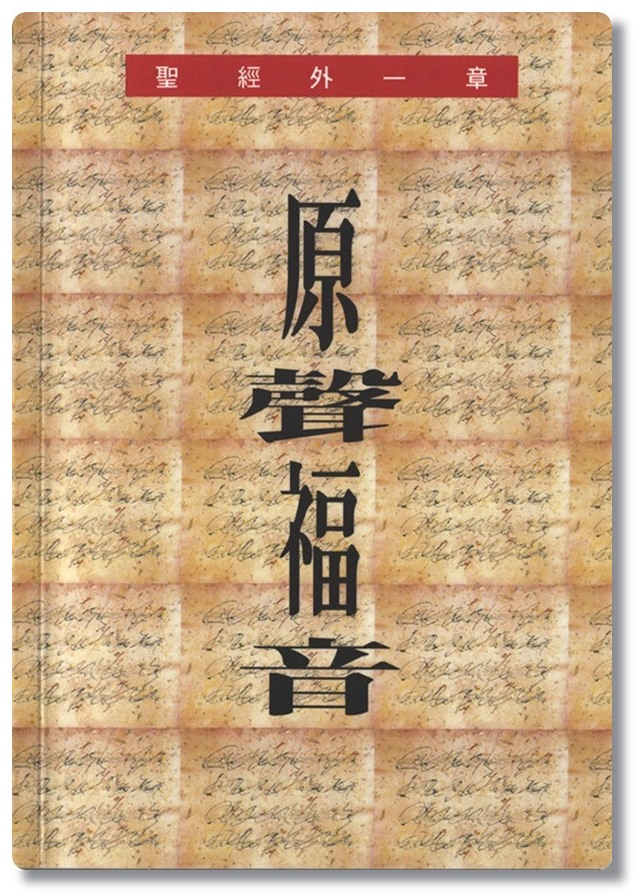 聖經外一章
原聲福音